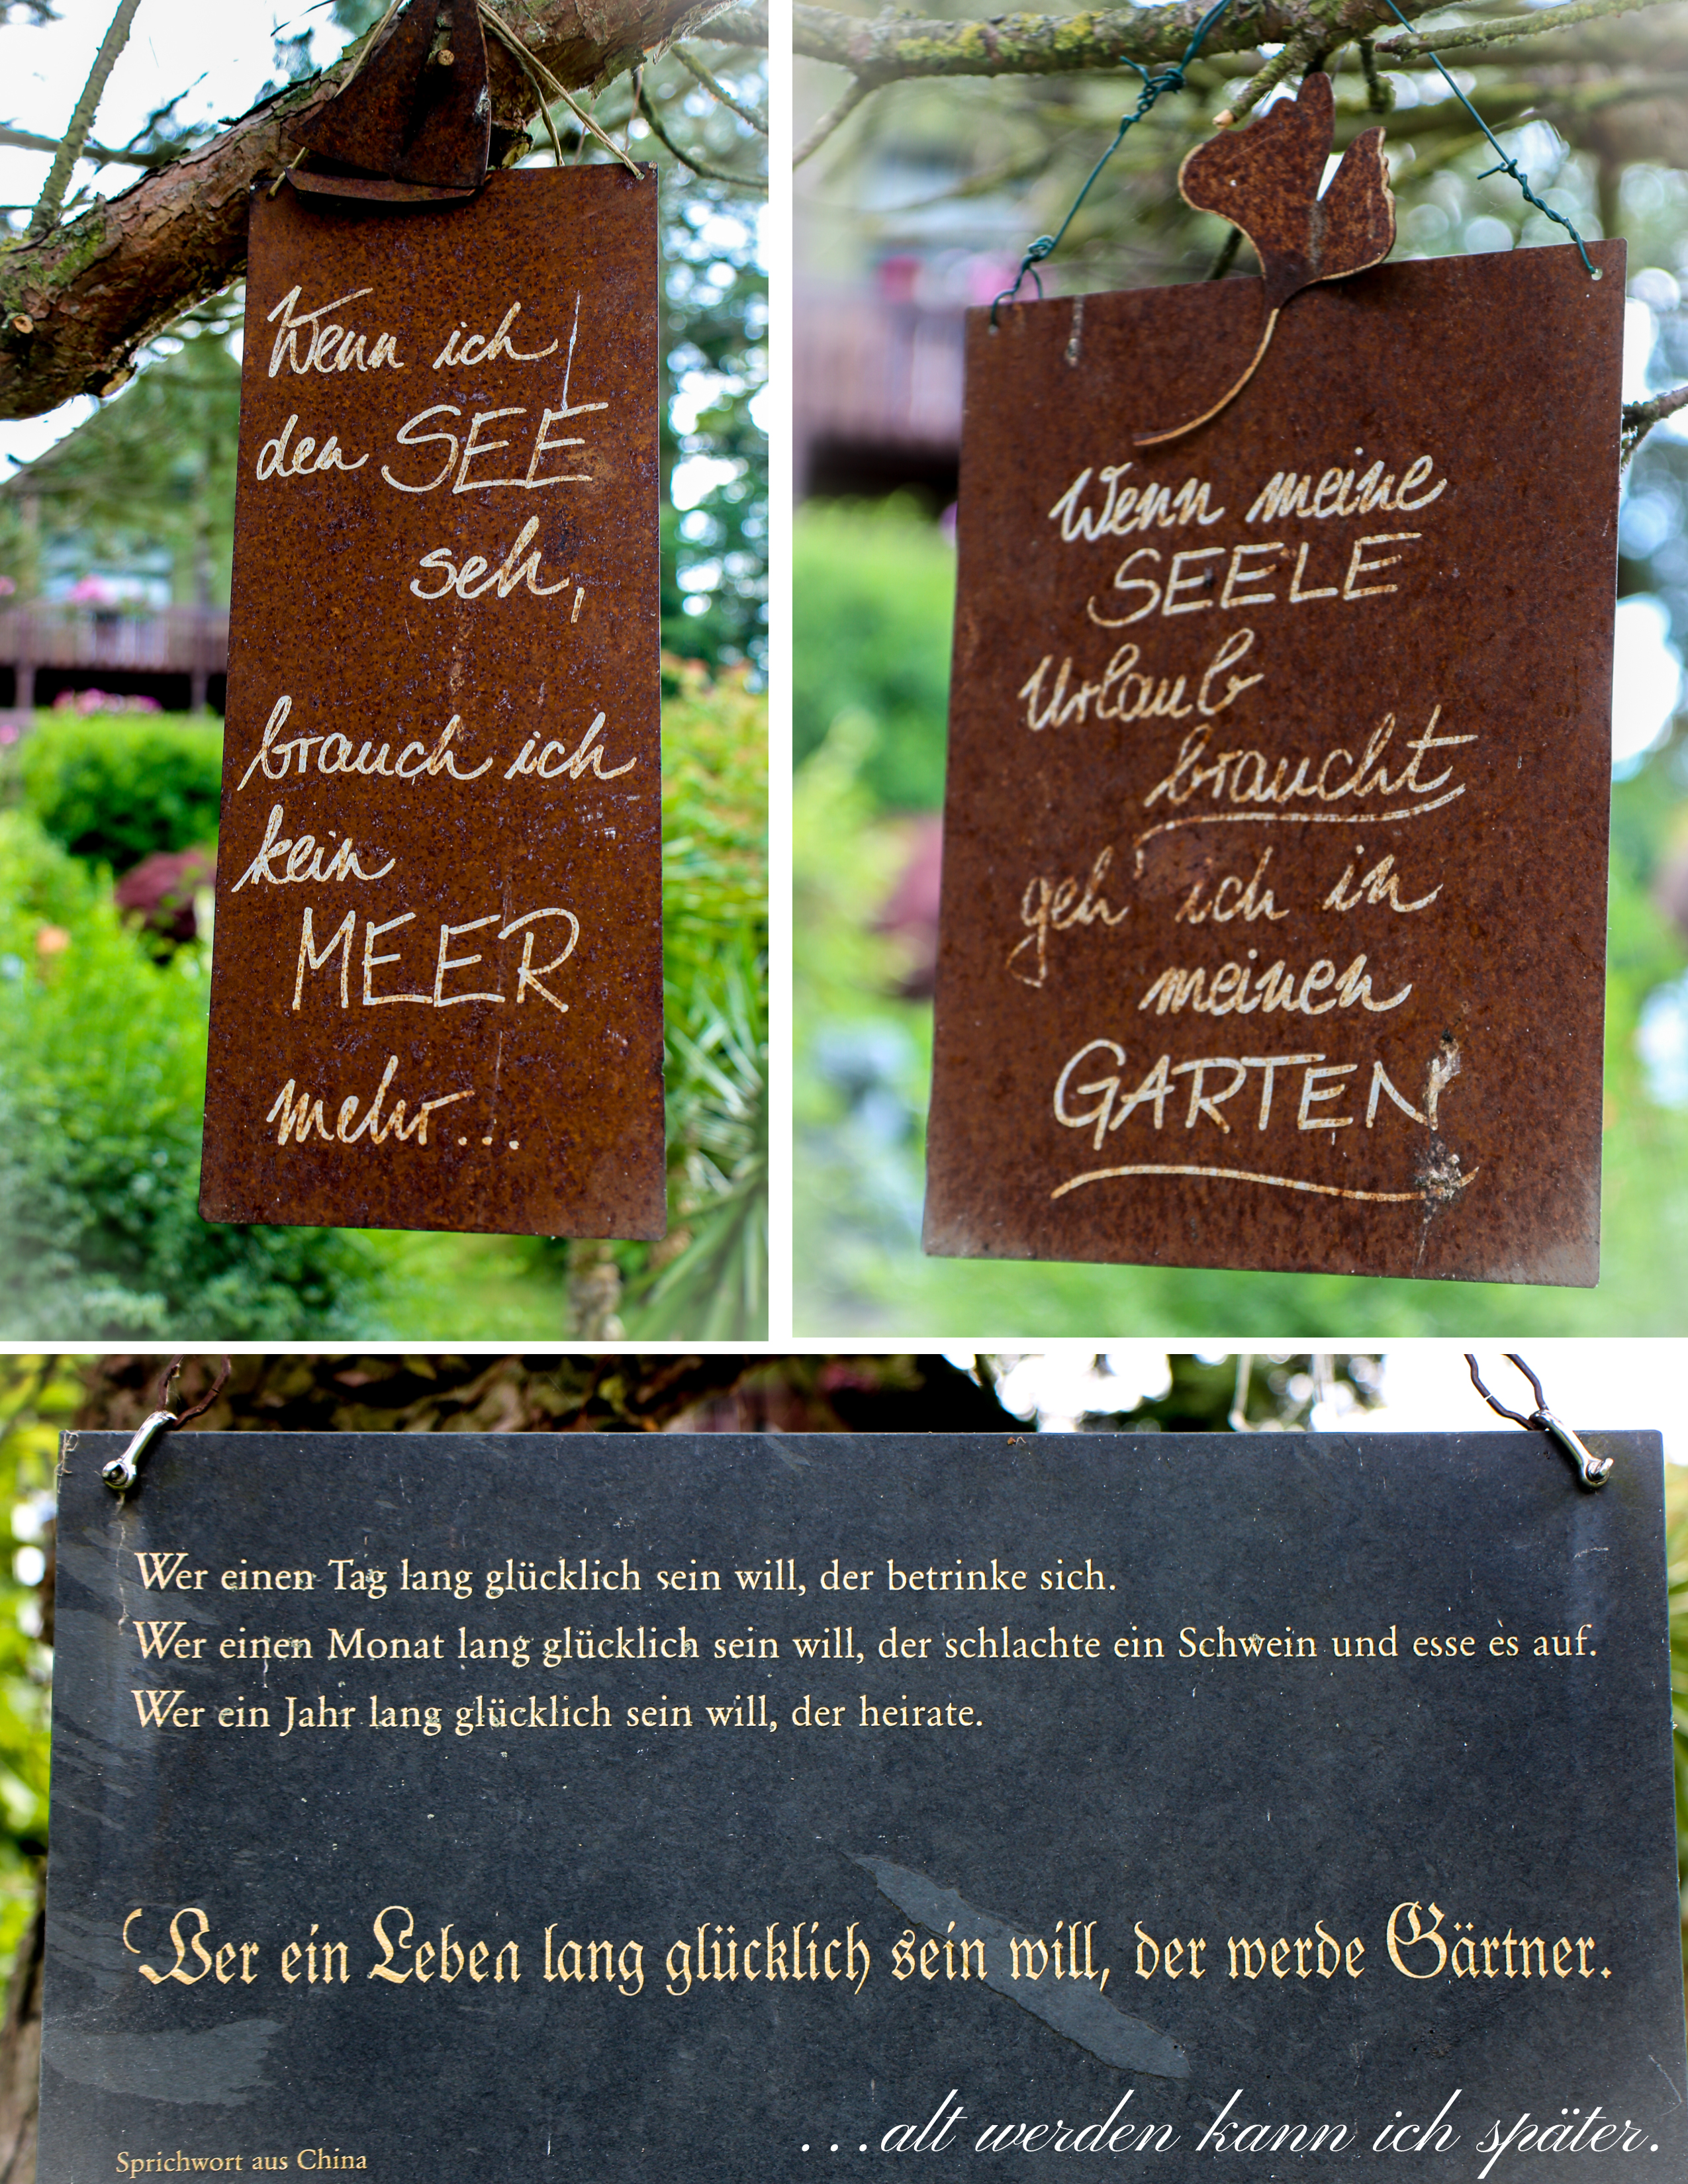 Wenn ich
den SEE
seh,
brauch ich
kein
MEER
mehr...
Wenn meine
SEELE
Urlaub
braucht
geh ich in
meinen
GARTEN
Wer einen Tag lang glücklich sein will, der betrinke sich.
Wer einen Monat lang glücklich sein will, der schlachte ein Schwein und esse es auf.
Wer ein Jahr lang glücklich sein will, der heirate.
Wer ein Leben lang glücklich sein will, der werde Gärtner.
Sprichwort aus China
...alt werden kann ich später.